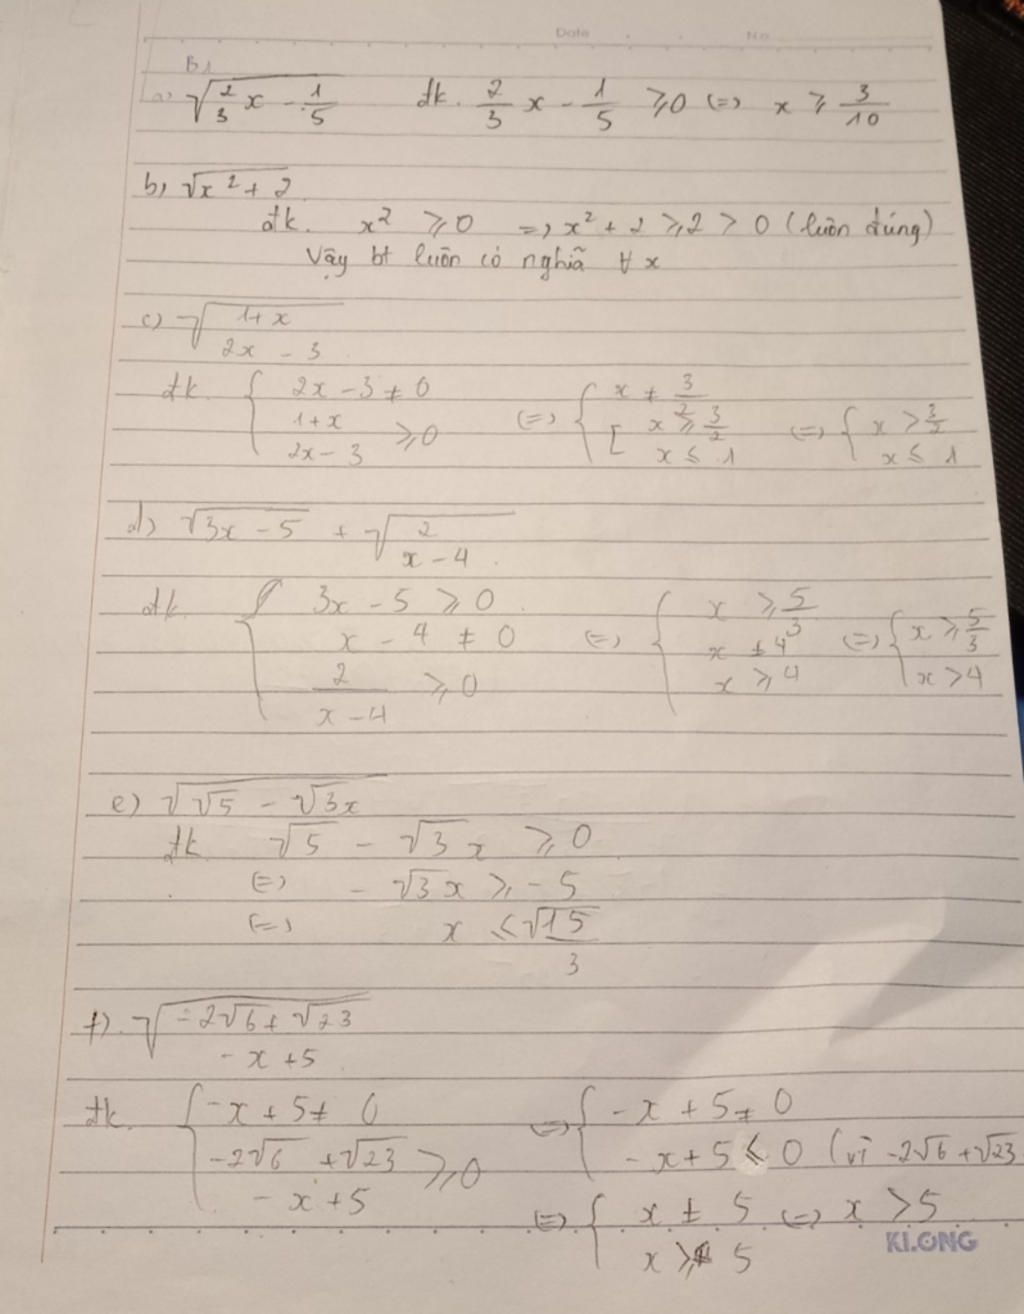 Date No
B1
a) √(2/3 x - 1/5) đk. 2/3 x - 1/5 ≥ 0 (=) x ≥ 3/10
b) √(x² + 2)
đk. x² ≥ 0 => x² + 2 ≥ 2 > 0 (luôn đúng)
Vậy bt luôn có nghĩã ∀ x
c) √((1+x)/(2x - 3))
đk. { 2x - 3 ≠ 0 (=) { x ≠ 3/2
(1+x)/(2x - 3) ≥ 0 [ x ≥ 3/2 (=) { x > 3/2
x ≤ 1 x ≤ 1
d) √(3x - 5) + √(2/(x - 4))
đk. { 3x - 5 ≥ 0 (=) { x ≥ 5/3 (=) { x ≥ 5/3
x - 4 ≠ 0 x ≠ 4 x > 4
2/(x - 4) ≥ 0 x ≥ 4
e) √(√5 - √3x)
đk √5 - √3 x ≥ 0
(=) - √3 x ≥ - 5
(=) x ≤ √15/3
f) √((-2√6 + √23)/(-x + 5))
đk. { -x + 5 ≠ 0 (=) { -x + 5 ≠ 0
(-2√6 + √23)/(-x + 5) ≥ 0 -x + 5 ≤ 0 (vì -2√6 + √23
(=) { x ≠ 5 (=) x > 5
x ≥ 5
KLONG